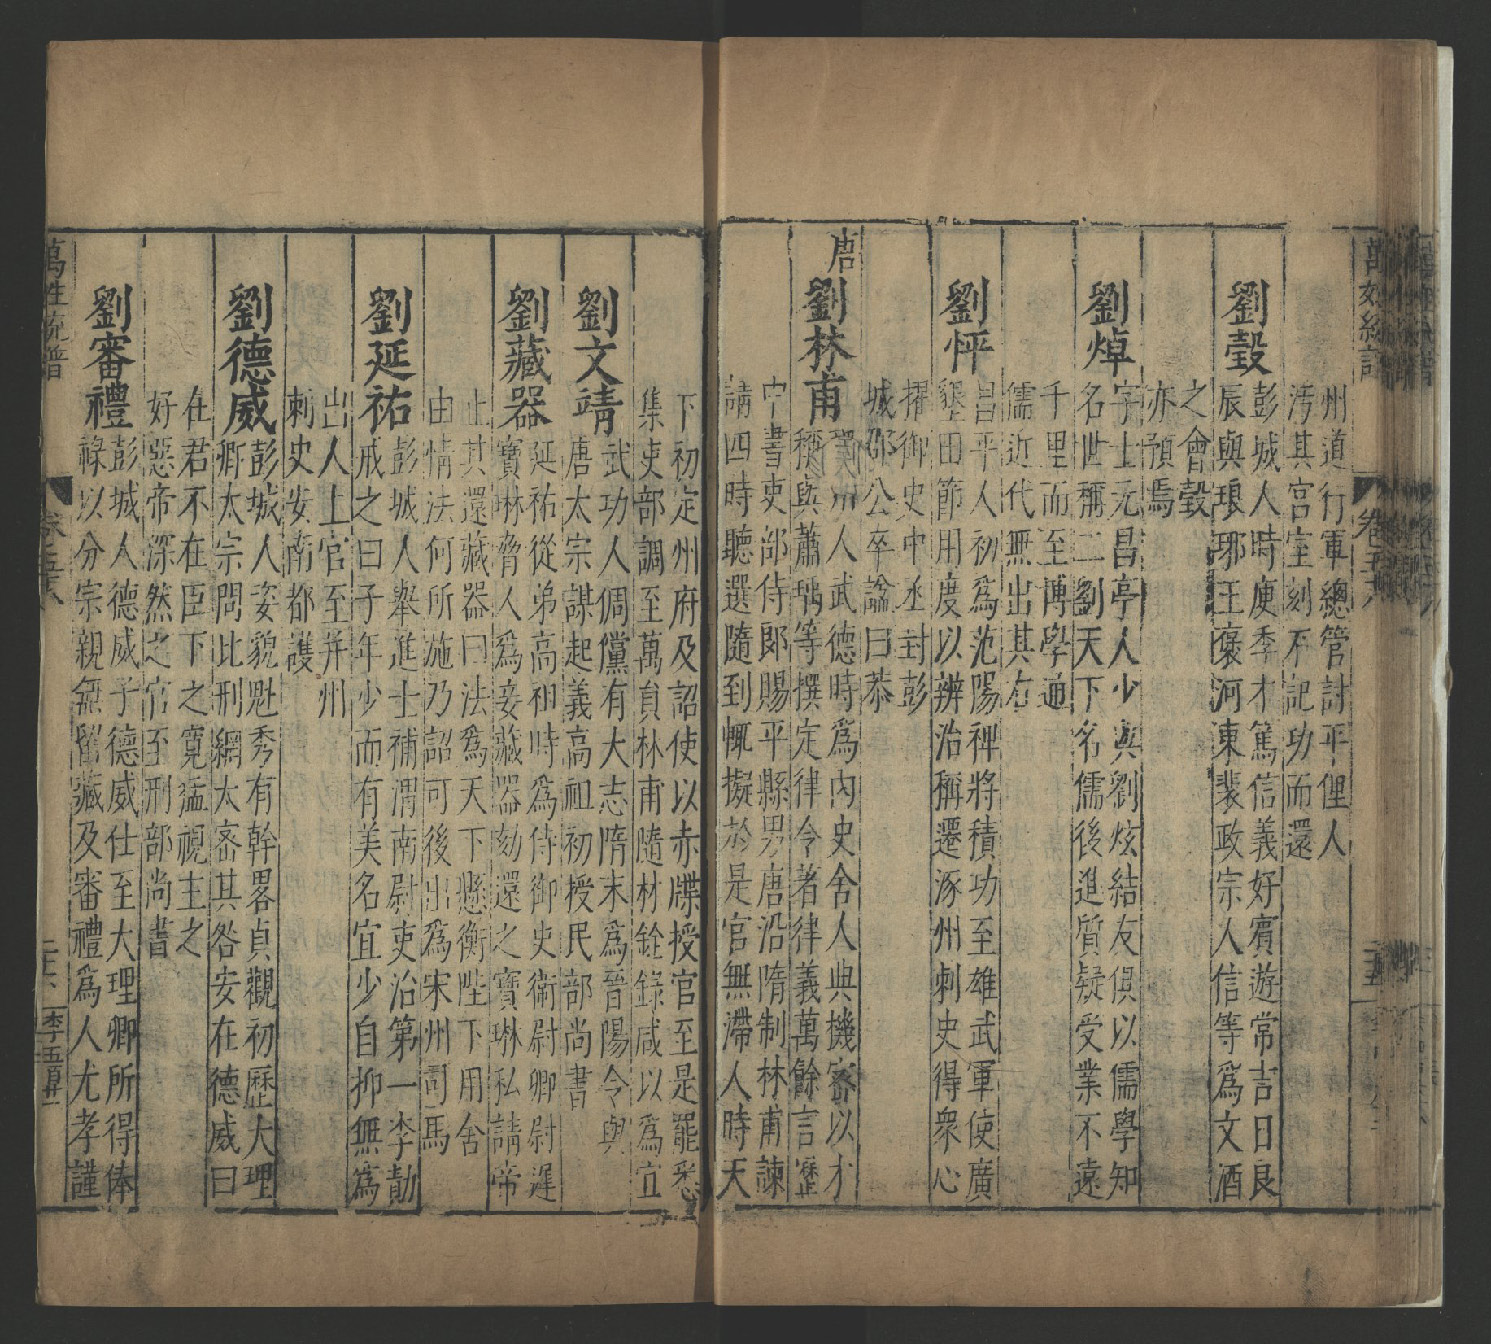 州道行軍總管討平俚人
汚其宮室刻石記功而還
劉瑴
彭城人時庾季才篤信義好賓遊常吉日良
辰與琅琊王褒河東裴政宗人信等爲文酒
之會瑴
亦預焉
劉焯
字士元昌亭人少與劉炫結友俱以儒學知
名世稱二劉天下名儒後進質疑受業不遠
千里而至博學通
儒近代無出其右
劉怦
昌平人初爲范陽裨將積功至雄武軍使廣
墾田節用度以辨治稱遷涿州刺史得衆心
擢御史中丞封彭
城郡公卒諡曰恭
唐
劉林甫
冀州人武德時爲內史舍人典機密以才
稱與蕭瑀等撰定律令著律義萬餘言歷
中書吏部侍郎賜平縣男唐沿隋制林甫諫
請四時聽選隨到輒擬於是官無滯人時天
下初定州府及詔使以赤牒授官至是罷悉
集吏部調至萬員林甫隨材銓錄咸以爲宜
劉文靖
武功人倜儻有大志隋末爲晉陽令與
唐太宗謀起義高祖初授民部尚書
劉藏器
延祐從弟高祖時爲侍御史衞尉卿尉遲
寶琳脅人爲妾藏器劾還之寶琳私請帝
止其還藏器曰法爲天下懸衡陛下用舍
由情法何所施乃詔可後出爲宋州司馬
劉延祐
彭城人舉進士補渭南尉吏治第一李勣
戒之曰子年少而有美名宜少自抑無爲
出人上官至并州
刺史安南都護
劉德威
彭城人姿貌魁秀有幹畧貞觀初歷大理
卿太宗問比刑網太密其咎安在德威曰
在君不在臣下之寬猛視主之
好惡帝深然之官至刑部尚書
劉審禮
彭城人德威子德威仕至大理卿所得俸
祿以分宗親無留藏及審禮爲人尤孝謹
萬姓統譜
卷五十八